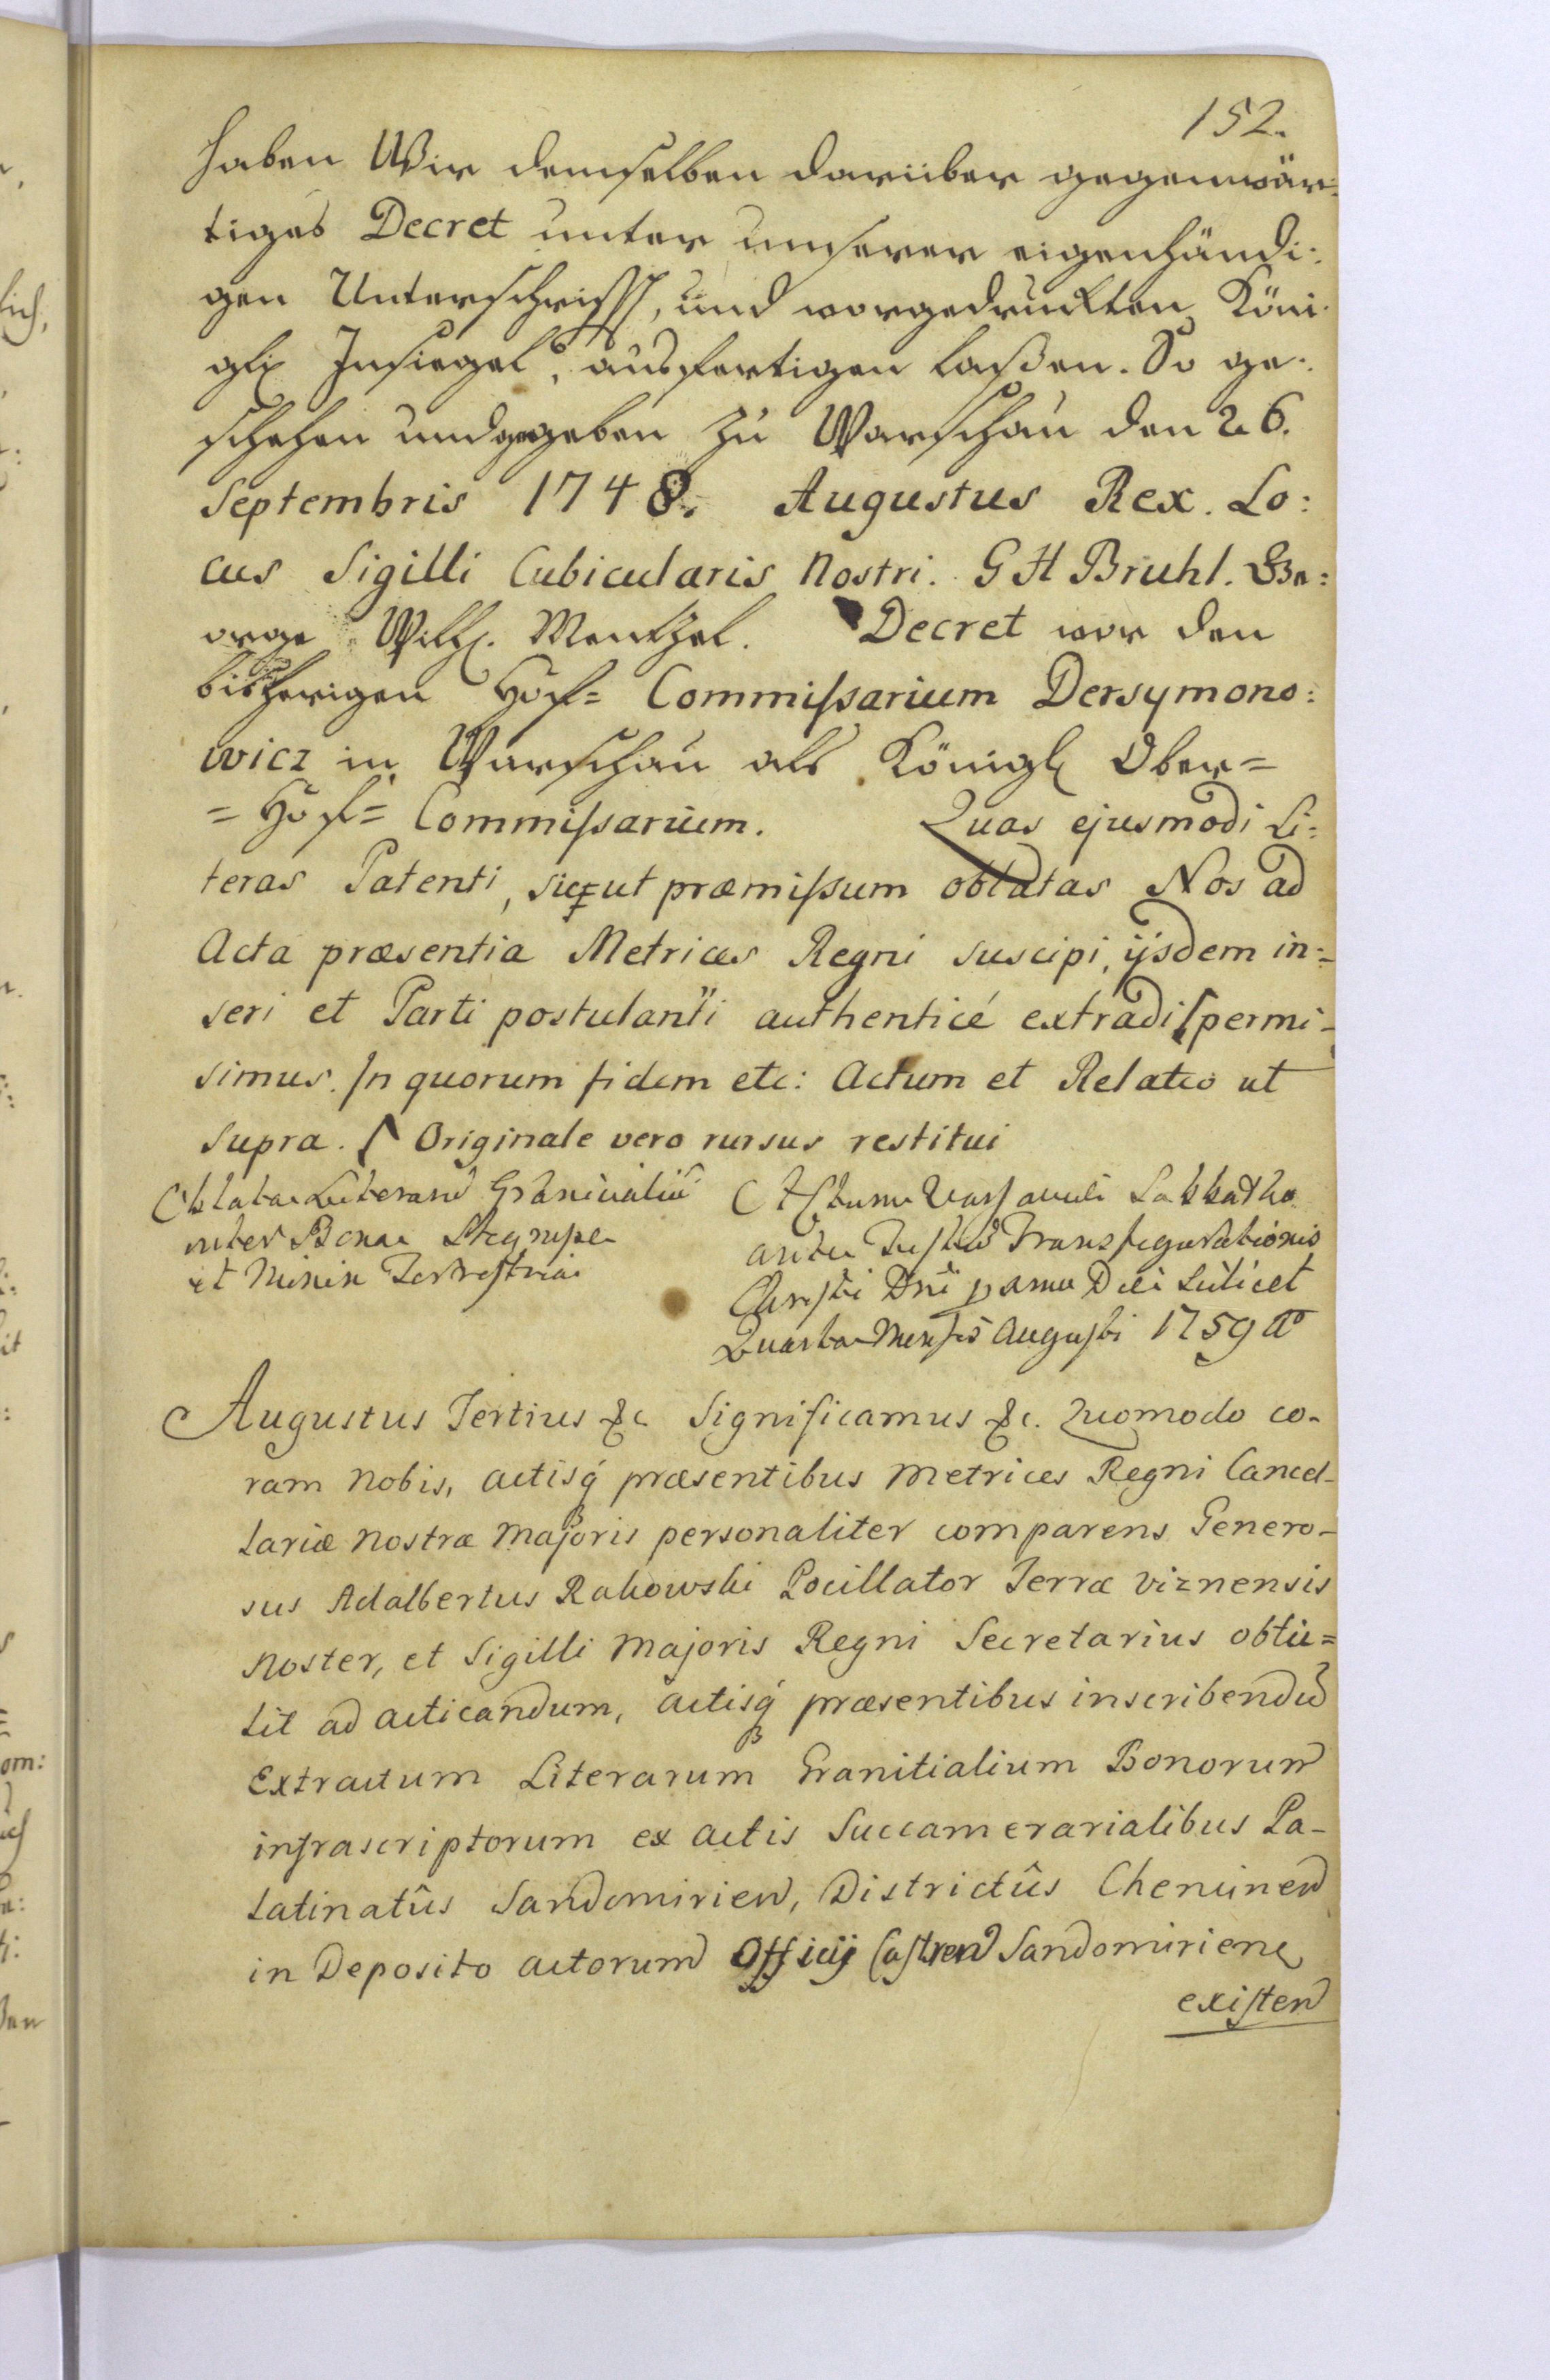 152.
haben Wir demselben darüber gegenwär-
tiges Decret unter unserer eigenhändi:
gen Unterschrifft, und vorgedruckten Köni-
gl. Insiegel, ausfertigen laßen. So ge:
schehen und gegeben zu Warschau den 26.
Septembris 1748. Augustus Rex. Lo:
cus Sigilli Cubicularis Nostri. G H Bruhl. Ge:
orge Wilh. Mentzel. Decret vor den
bißherigen Hof= Commissarium Dersymono:
wicz in Warschau als Königl Ober=
=Hof= Commissarium. Quas ejusmodi Li:
teras Patenti, sicut præmissum oblatas Nos ad
Acta præsentia Metrices Regni suscipi, ijsdem in=
seri et Parti postulanti authenticé extradi permi-
simus. In quorum fidem etc: Actum et Relatio ut
supra. Originale vero rursus restitui
Oblata Literarū Granicialiū
inter Bona Stegnipe
et Minin Terrestria
Actum Varsaviæ Sabbatho
ante Festū Transfigurationis
Christi Dni Die Scilicet
Quarta Mensis Augusti 1759 Aō
Augustus Tertius &c Significamus &c. Quomodo co-
ram Nobis, actisq́ præsentibus Metrices Regni Cancel-
lariæ Nostræ Majoris personaliter comparens Genero-
sus Adalbertus Rakowski Pocillator Terræ Viznensis
Noster, et Sigilli Majoris Regni Secretarius obtu=
lit ad acticandum, actisq́ præsentibus inscribendū
Extractum Literarum Granitialium Bonorum
infrascriptorum ex actis Succamerarialibus Pa-
latinatûs Sandomirien, Districtûs Chencinen
in Deposito actorum Officij Castren Sandomirien
existen